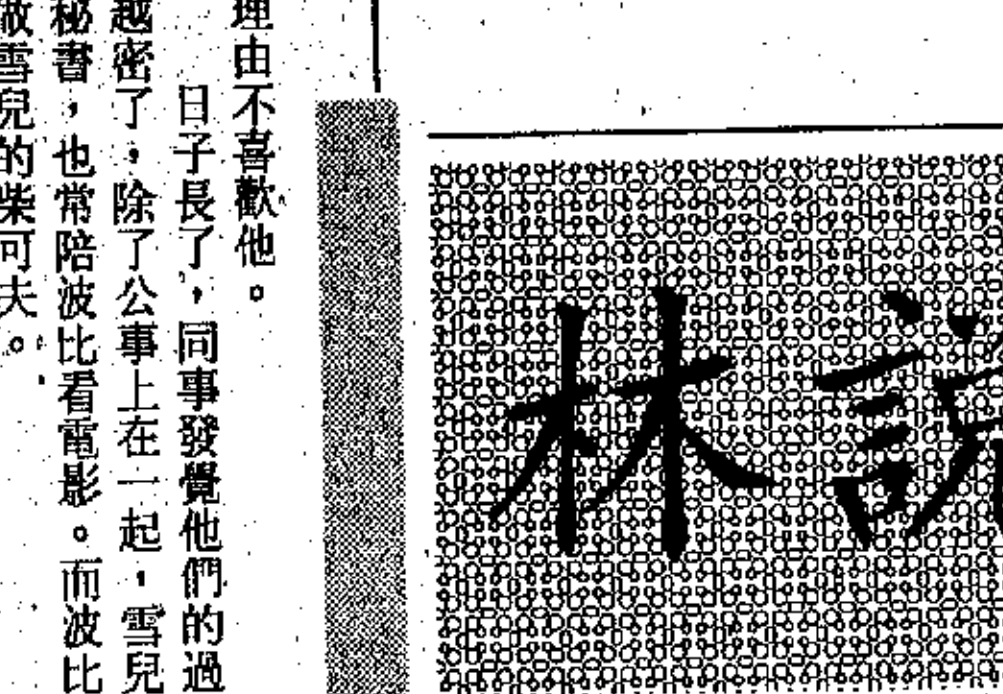 林
理由不喜歡他。
日子長了，同事發覺他們的過
越密了，除了公事上在一起，雪兒
秘書，也常陪波比看電影。而波比
做雪兒的柴可夫。